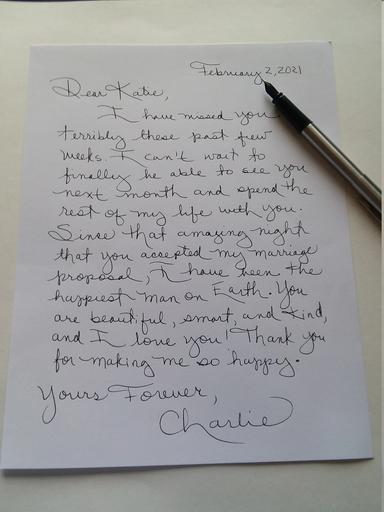 February 2, 2021
Dear Katie,
I have missed you
terribly these past few
weeks. I can't wait to
finally be able to see you
next month and spend the
rest of my life with you.
Since that amazing night
that you accepted my marriage
proposal, I have been the
happiest man on Earth. You
are beautiful, smart, and kind,
and I love you! Thank you
for making me so happy.
Yours Forever,
Charlie